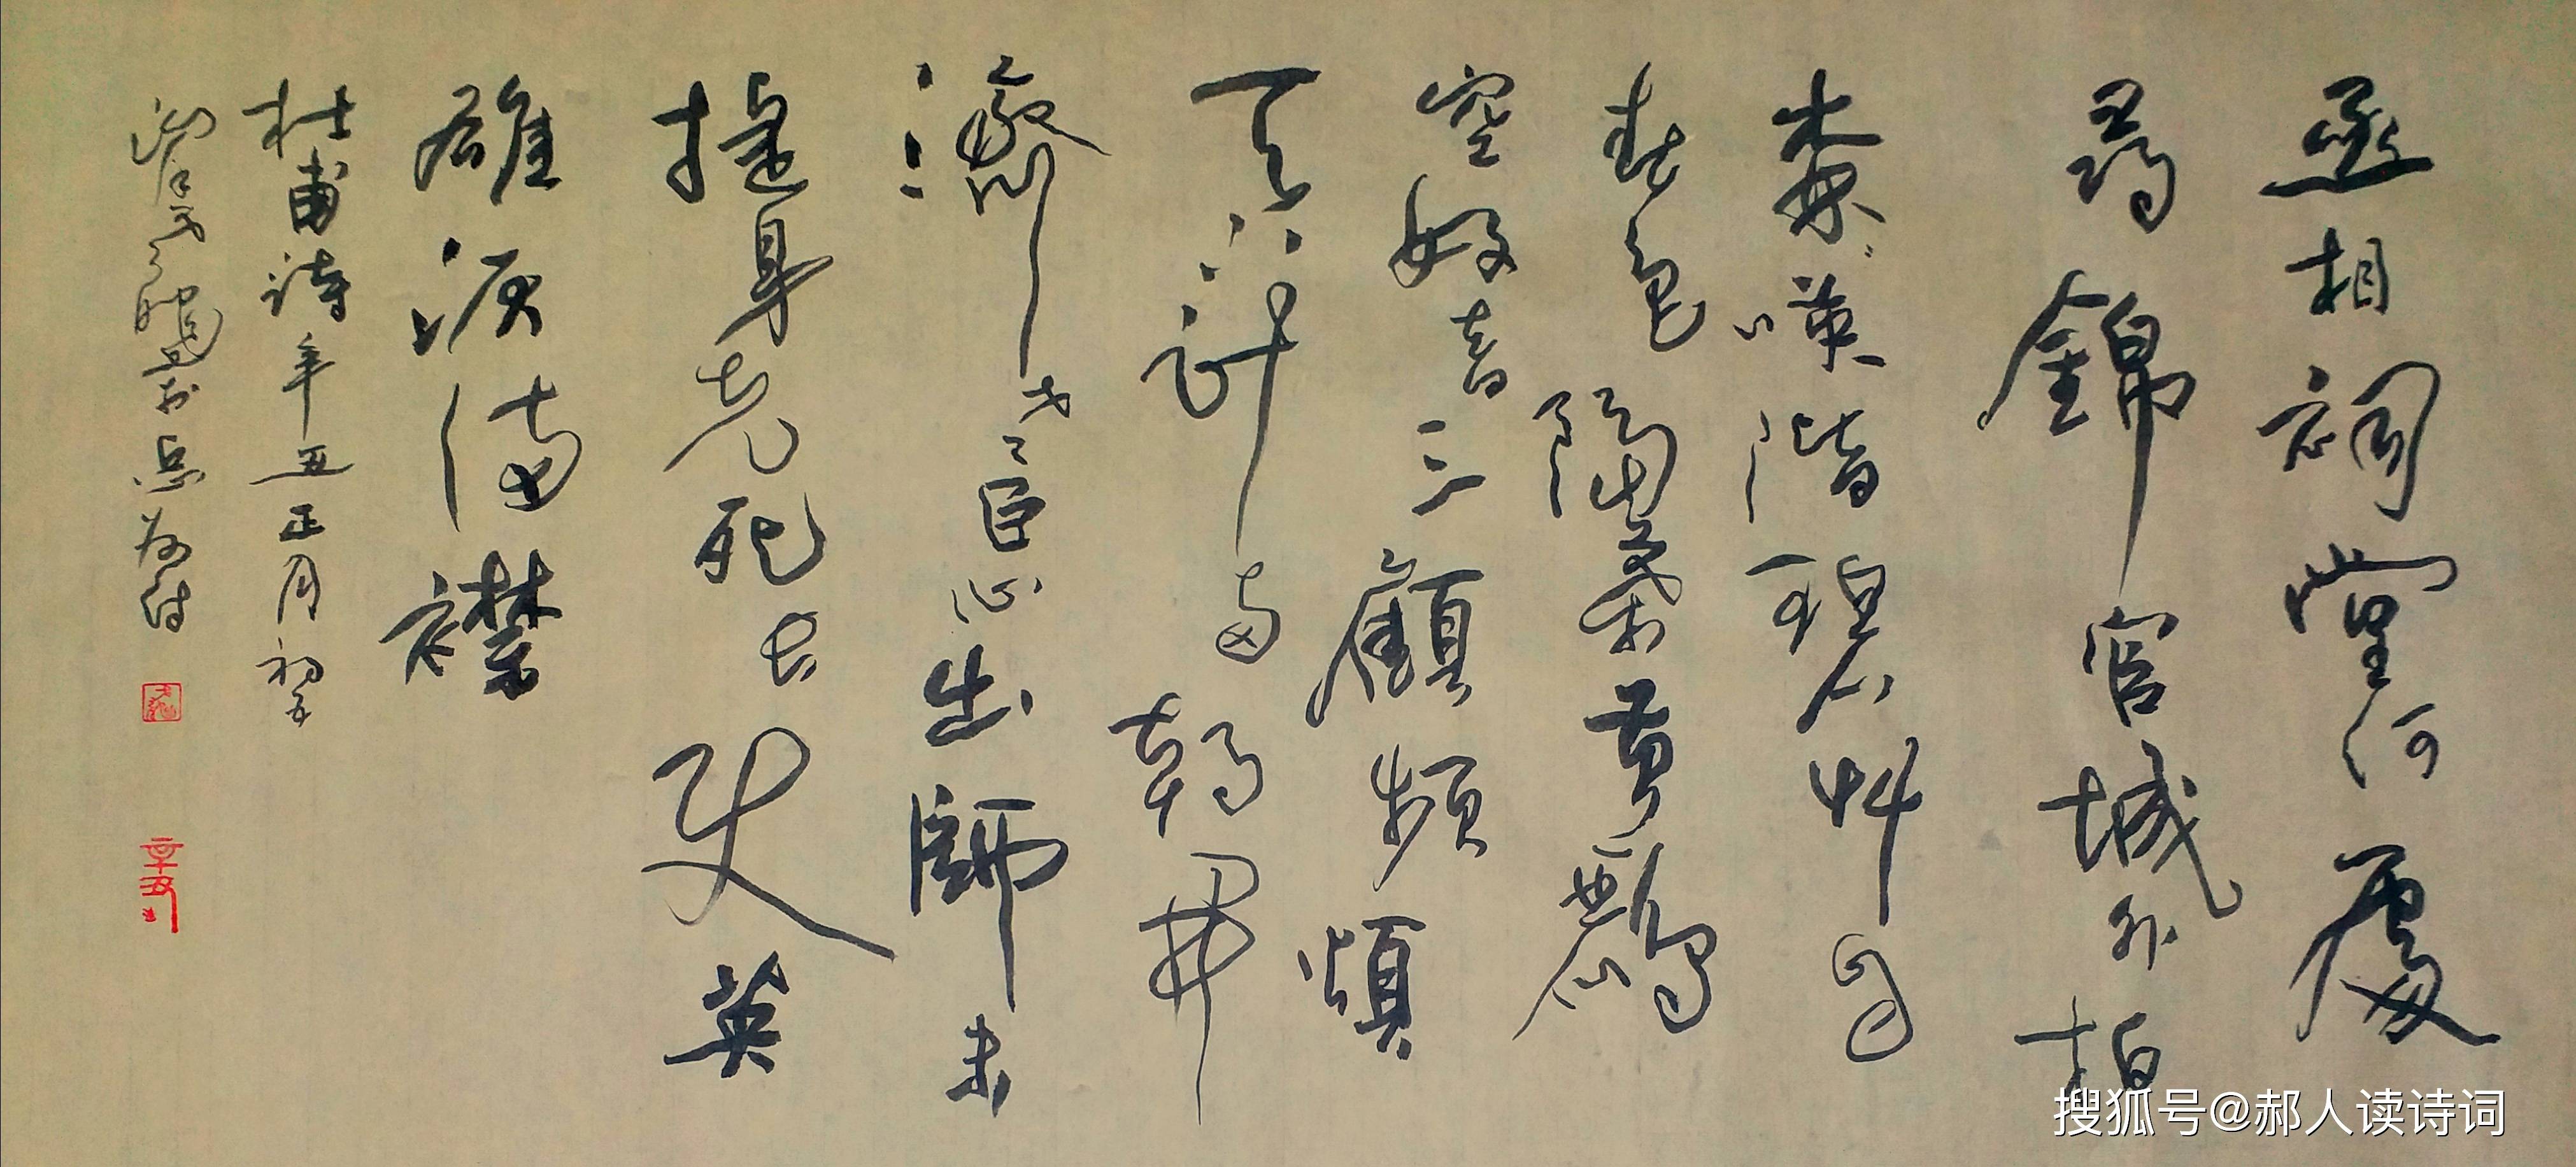 丞相祠堂何處
尋錦官城外柏
森〻暎階碧艸自
春色隔葉黃鸝
空好音三顧頻煩
天下計兩朝開
濟老臣心出師未
捷身先死長使英
雄淚滿襟
杜甫詩辛丑正月初五
辛丑
搜狐号@郝人读诗词